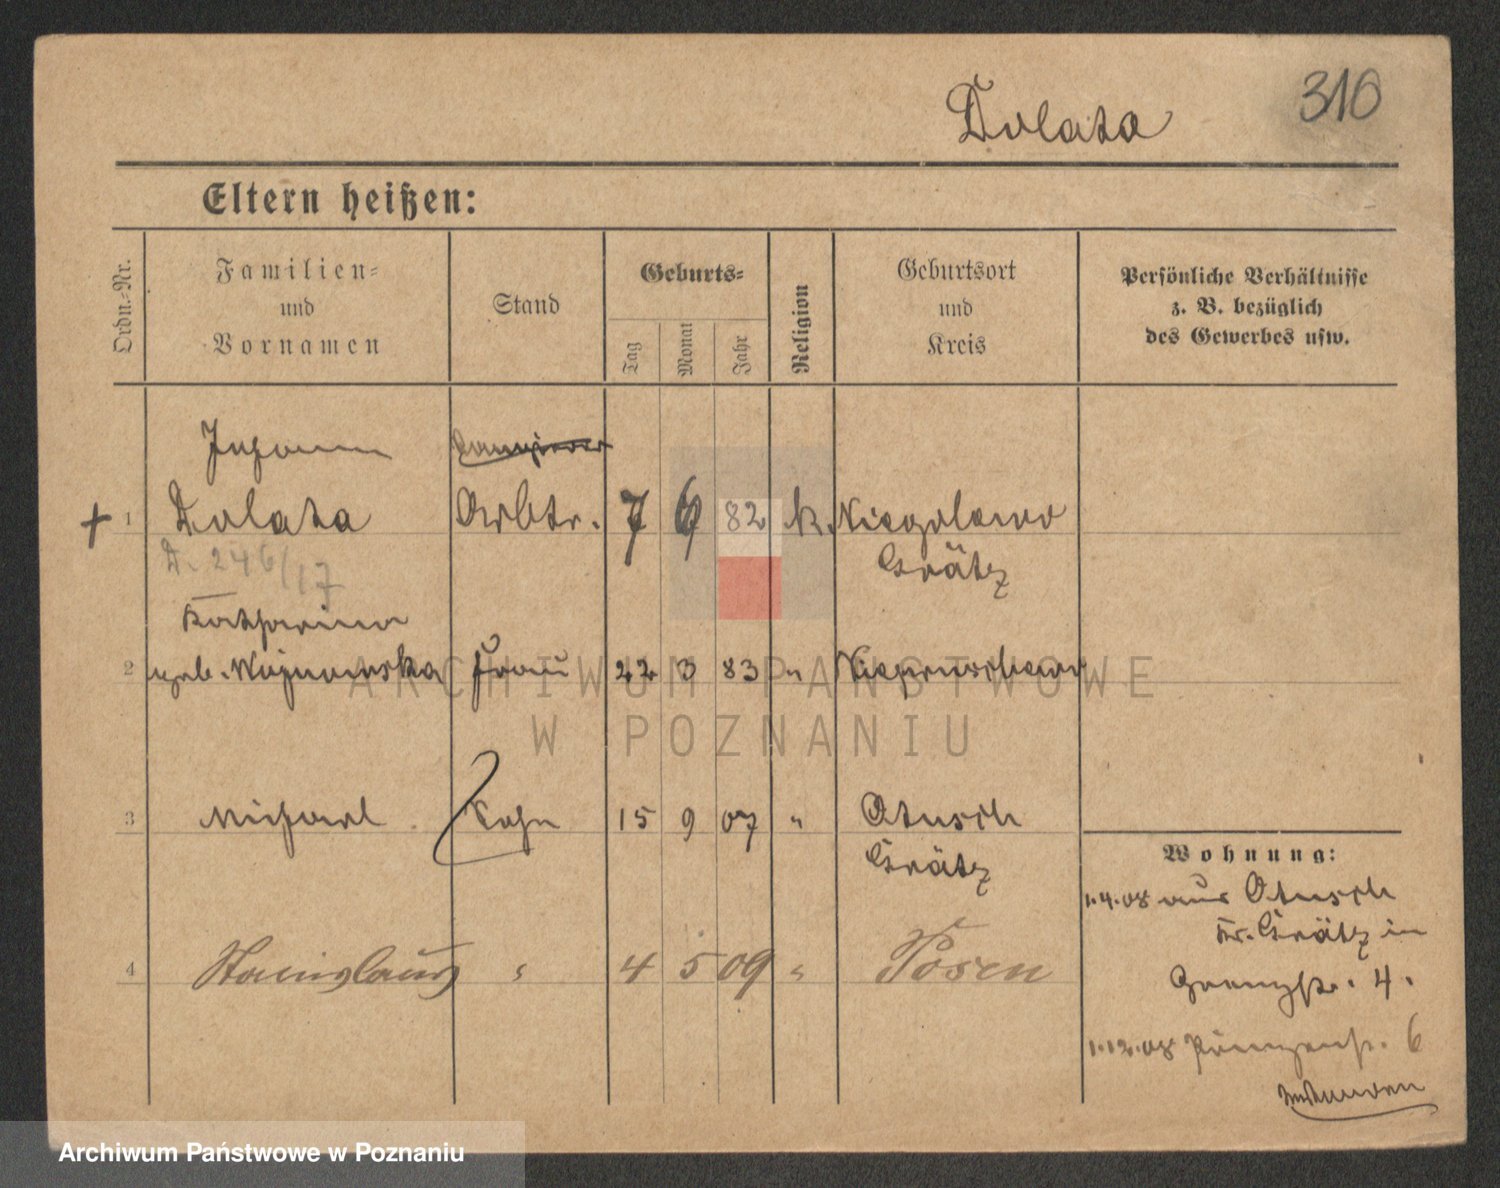 Dolata
310
Eltern heißen:
Ordn.-Nr.
Familien-
und
Vornamen
Stand
Geburts-
Tag
Monat
Jahr
Religion
Geburtsort
und
Kreis
Persönliche Verhältnisse
z. B. bezüglich
des Gewerbes usw.
Johann
+ 1 Dolata Arbtr. 7 6 82 k. Niegolewo
Grätz
D. 246/17
Katharina
2 geb. Wojnowska Frau 22 3 83 "
3 Michael Sohn 15 9 07 " Otusch
Grätz
4 Stanislaus " 4 5 09 " Posen
Wohnung:
1.4.08 aus Otusch
Kr. Grätz in
Grenzstr. 4.
1.12.08 Prinzenstr. 6
ARCHIWUM PAŃSTWOWE
W POZNANIU
Archiwum Państwowe w Poznaniu